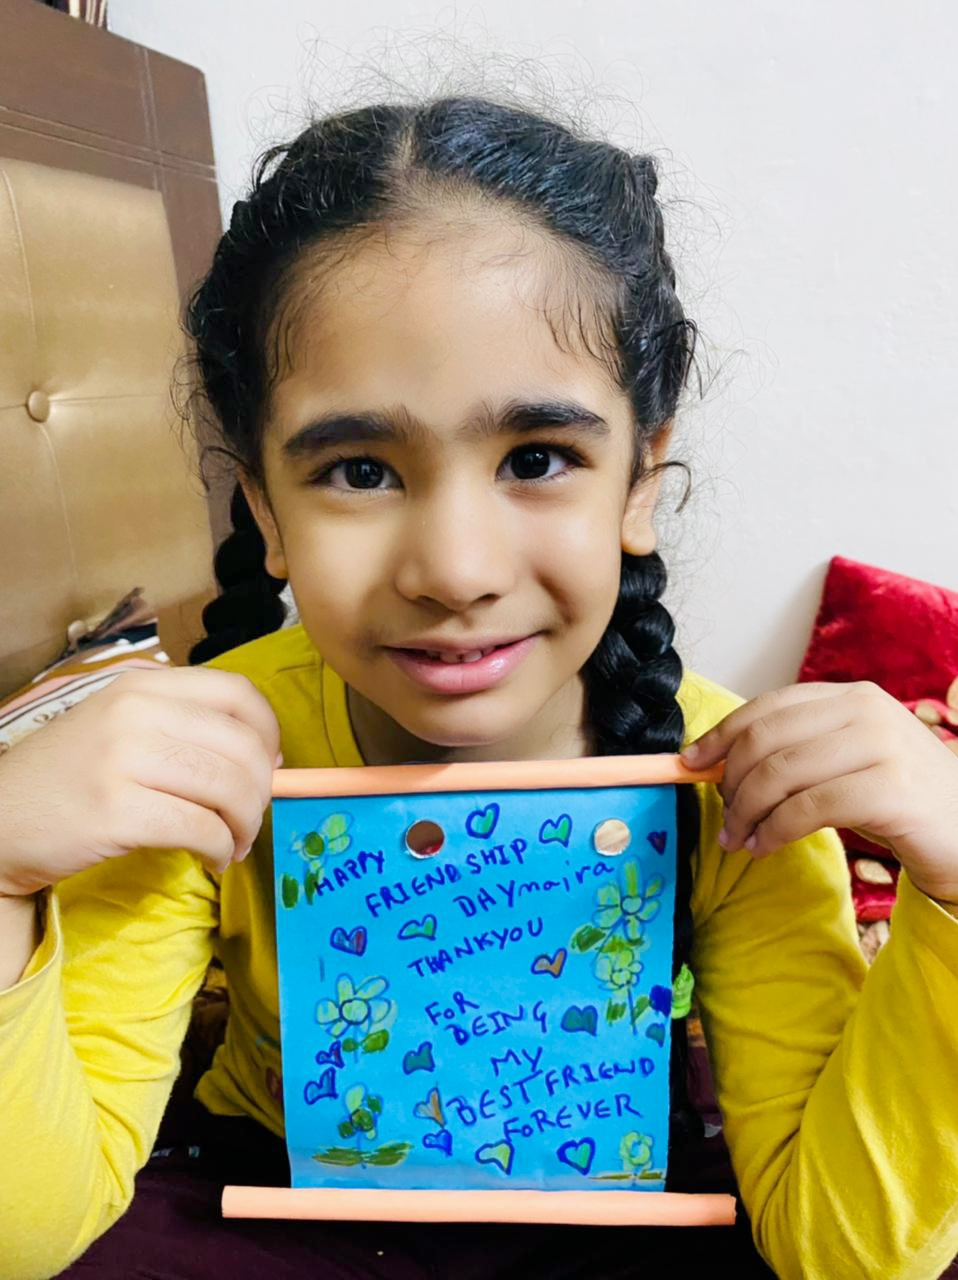 HAPPY
FRIENDSHIP
DAYmaira
THANKYOU
FOR
BEING
MY
BEST FRIEND
FOREVER